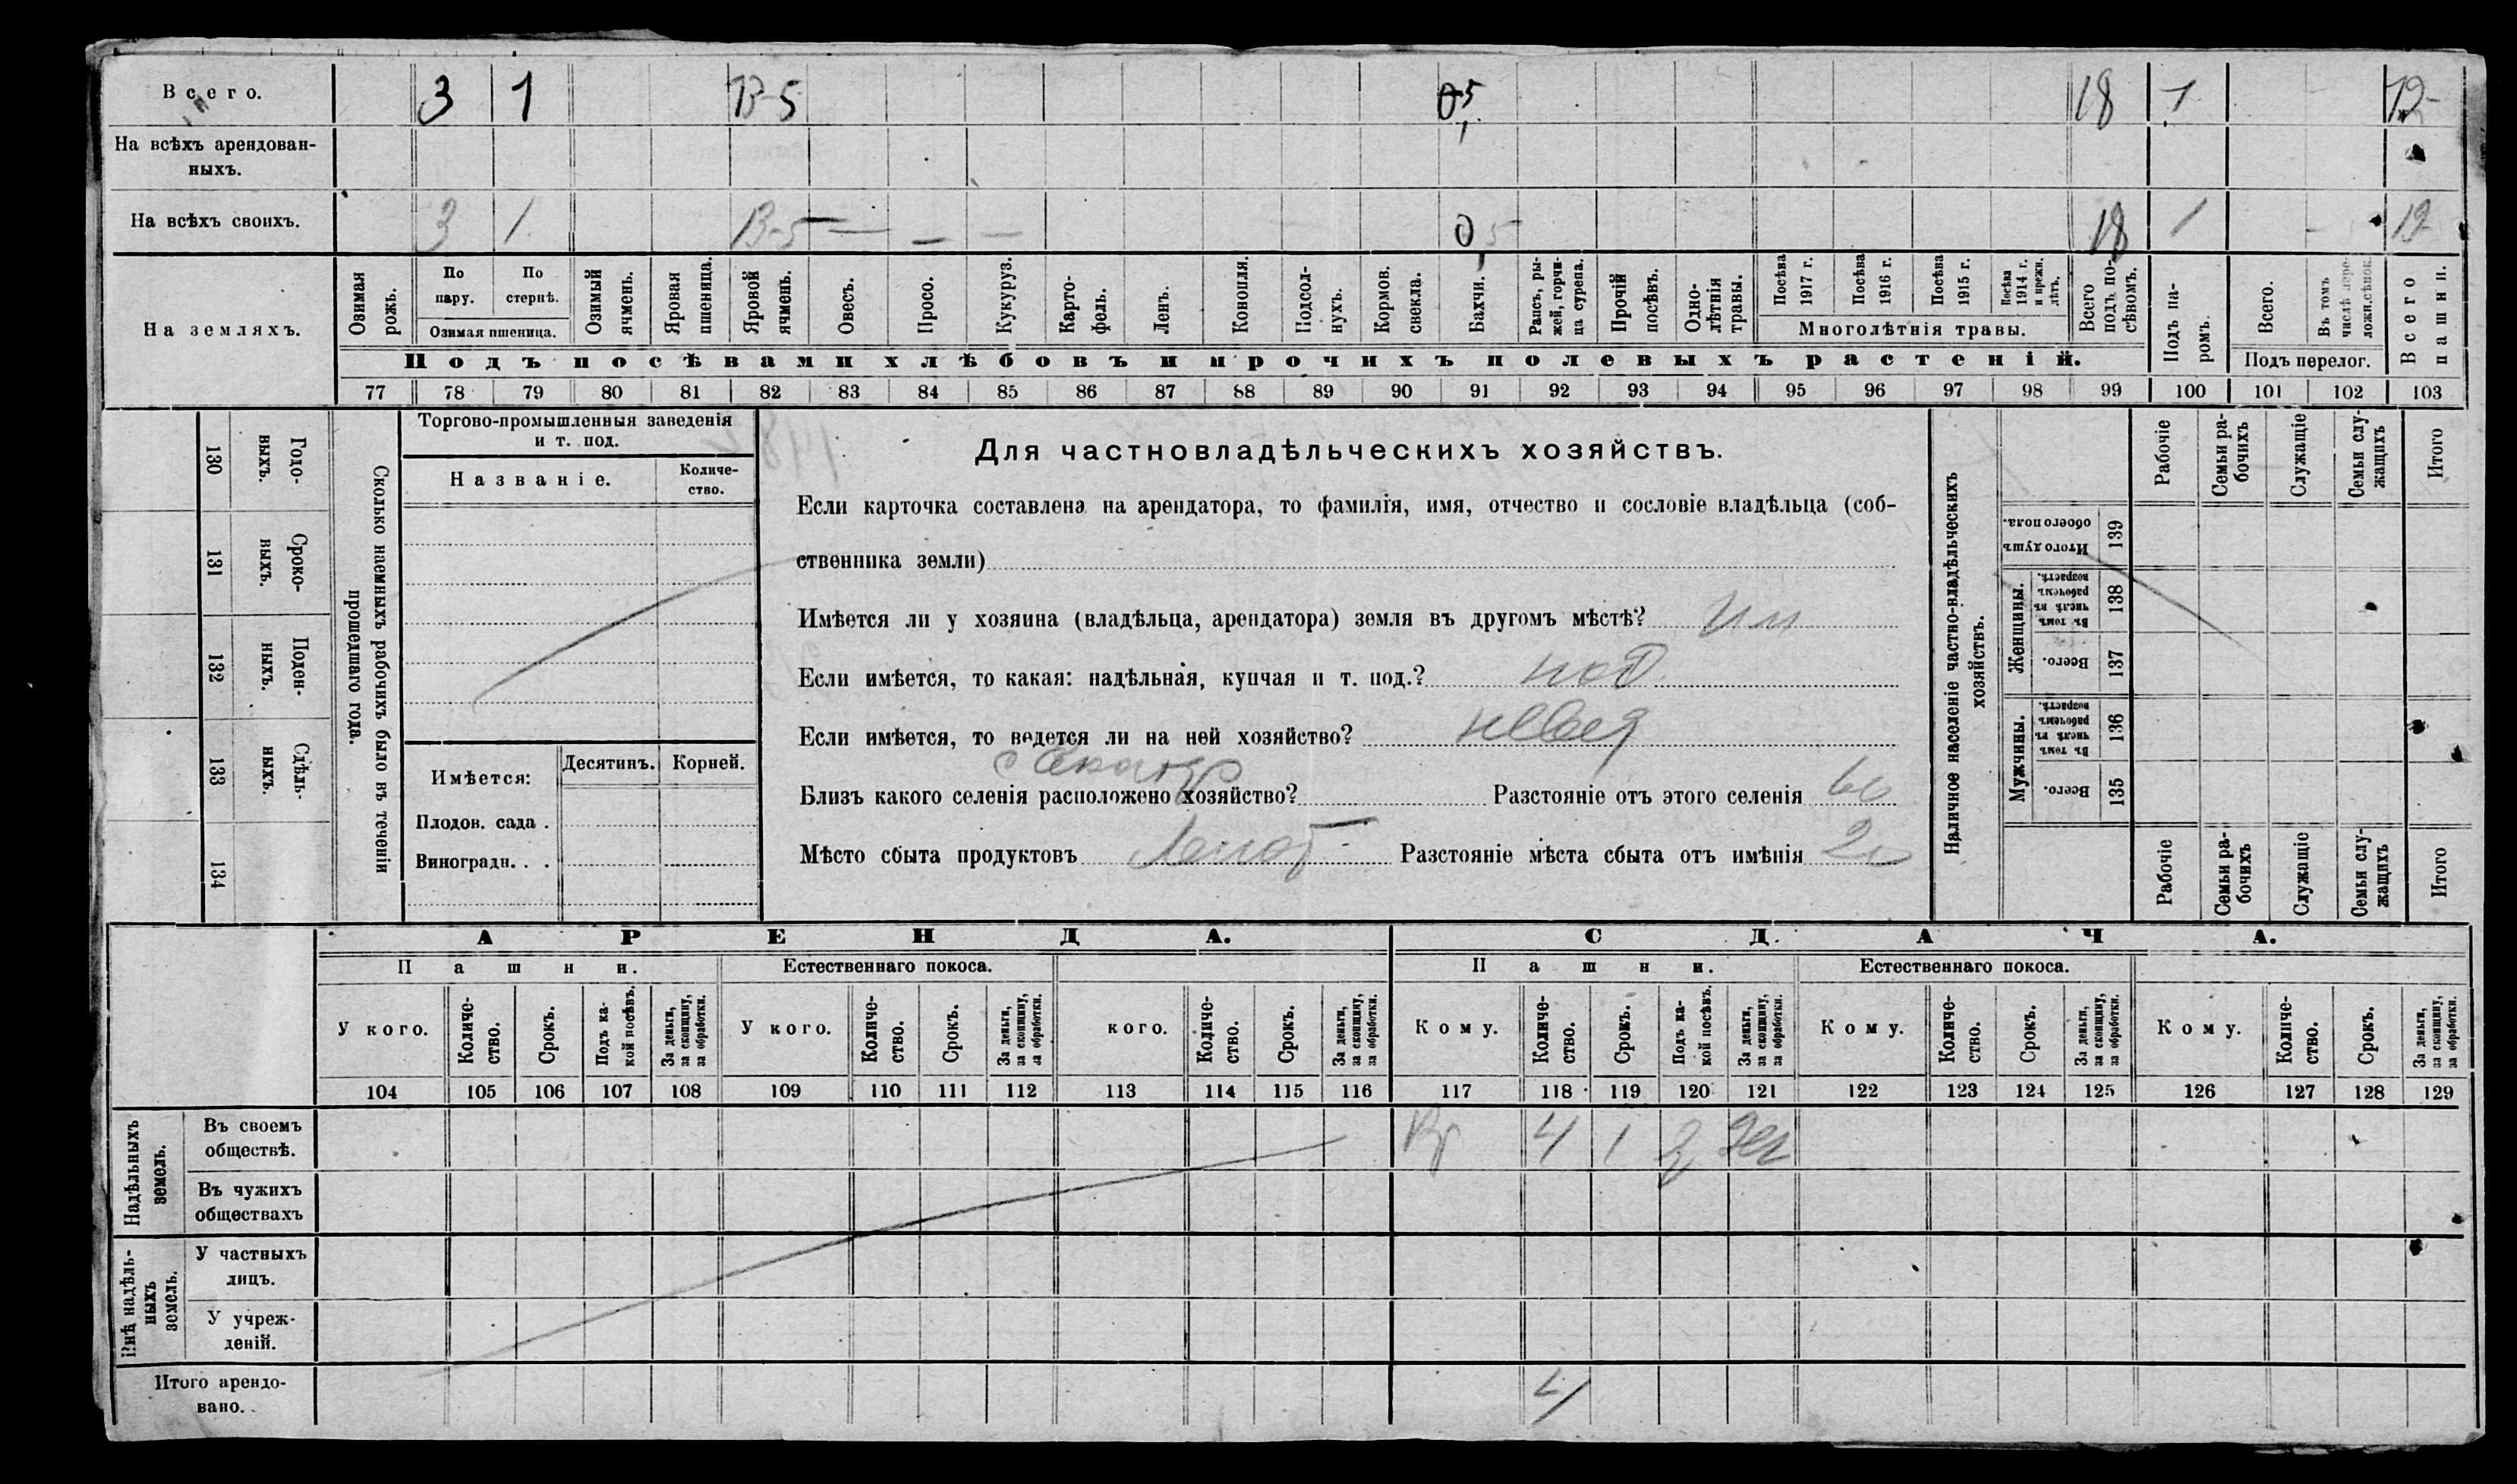 Всего. 3 1 13-5 0,5 18 1 19
На всѣхъ арендован-
ныхъ.
На всѣхъ своихъ. 3 1 13-5 0,5 18 1 19
На земляхъ.
Озимая рожь.
По пару.
По стернѣ.
Озимая пшеница.
Озимый ячмень.
Яровая пшеница.
Яровой ячмень.
Овесъ.
Просо.
Кукуруз.
Карто-
фель.
Ленъ.
Конопля.
Подсол-
нухъ.
Кормов.
свекла.
Бахчи.
Рапсъ, ры-
жей, горчи-
ца сурепа.
Прочій
посѣвъ.
Одно-
лѣтнія
травы.
Посѣва
1917 г.
Посѣва
1916 г.
Посѣва
1915 г.
Посѣва
1914 г.
и прежн.
лѣтъ.
Многолѣтнія травы.
Всего
подъ по-
сѣвомъ.
Подъ па-
ромъ.
Всего.
Въ томъ
числѣ пере-
ложн.сѣнок.
Подъ перелог.
Всего
пашни.
Подъ посѣвами хлѣбовъ и прочихъ полевыхъ растеній.
77 78 79 80 81 82 83 84 85 86 87 88 89 90 91 92 93 94 95 96 97 98 99 100 101 102 103
Годо-
выхъ.
130
Сроко-
выхъ.
131
Поден-
ныхъ.
132
Сдѣль-
ныхъ.
133
134
Сколько наемныхъ рабочихъ было въ теченіи
прошедшаго года.
Торгово-промышленныя заведенія
и т. под.
Названіе.
Количе-
ство.
Имѣется:
Десятинъ.
Корней.
Плодов. сада .
Виноградн. . .
Для частновладѣльческихъ хозяйствъ.
Если карточка составлена на арендатора, то фамилія, имя, отчество и сословіе владѣльца (соб-
ственника земли)
Имѣется ли у хозяина (владѣльца, арендатора) земля въ другомъ мѣстѣ?
Если имѣется, то какая: надѣльная, купчая и т. под.?
Если имѣется, то ведется ли на ней хозяйство?
Близъ какого селенія расположено хозяйство? Разстояніе отъ этого селенія
Мѣсто сбыта продуктовъ Разстояніе мѣста сбыта отъ имѣнія
Наличное населеніе частно-владѣльческихъ
хозяйствъ.
Рабочіе
Семьи ра-
бочихъ
Служащіе
Семьи слу-
жащихъ
Итого
Итого душъ
обоего пола.
139
Женщины.
Въ томъ
числѣ въ
рабочемъ
возрастѣ.
138
Всего.
137
Мужчины.
Въ томъ
числѣ въ
рабочемъ
возрастѣ.
136
Всего.
135
Рабочіе
Семьи ра-
бочихъ
Служащіе
Семьи слу-
жащихъ
Итого
АРЕНДА. СДАЧА.
Пашни. Естественнаго покоса. Пашни. Естественнаго покоса.
У кого.
Количе-
ство.
Срокъ.
Подъ ка-
кой посѣвъ.
За деньги,
за скопщину,
за обработки.
У кого.
Количе-
ство.
Срокъ.
За деньги,
за скопщину,
за обработки.
кого.
Количе-
ство.
Срокъ.
За деньги,
за скопщину,
за обработки.
Кому.
Количе-
ство.
Срокъ.
Подъ ка-
кой посѣвъ.
За деньги,
за скопщину,
за обработки.
Кому.
Количе-
ство.
Срокъ.
За деньги,
за скопщину,
за обработки.
Кому.
Количе-
ство.
Срокъ.
За деньги,
за скопщину,
за обработки.
104 105 106 107 108 109 110 111 112 113 114 115 116 117 118 119 120 121 122 123 124 125 126 127 128 129
Надѣльныхъ
земель.
Въ своемъ
обществѣ.
4 1
Въ чужихъ
обществахъ
Внѣ надѣль-
ныхъ
земель.
У частныхъ
лицъ.
У учреж-
деній.
Итого арендо-
вано.
4